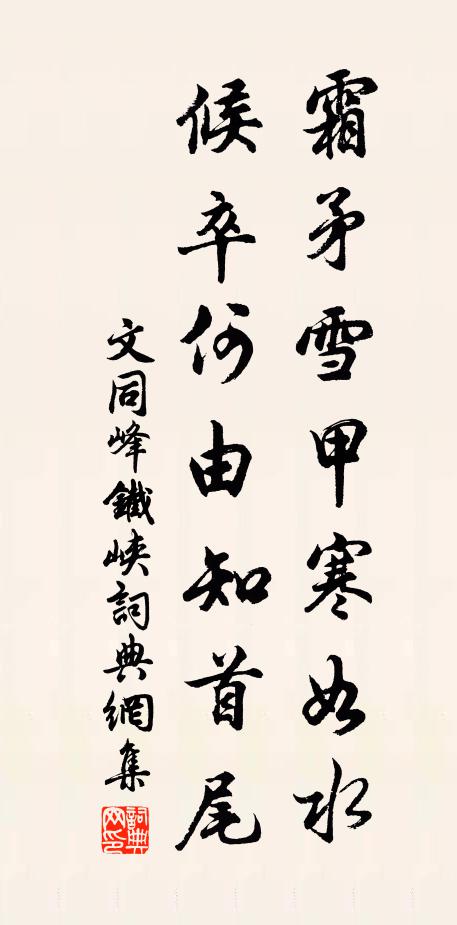 霜矛雪甲寒如水
候卒何由知首尾
文同峰鐵峽詞典網集
詞典网印